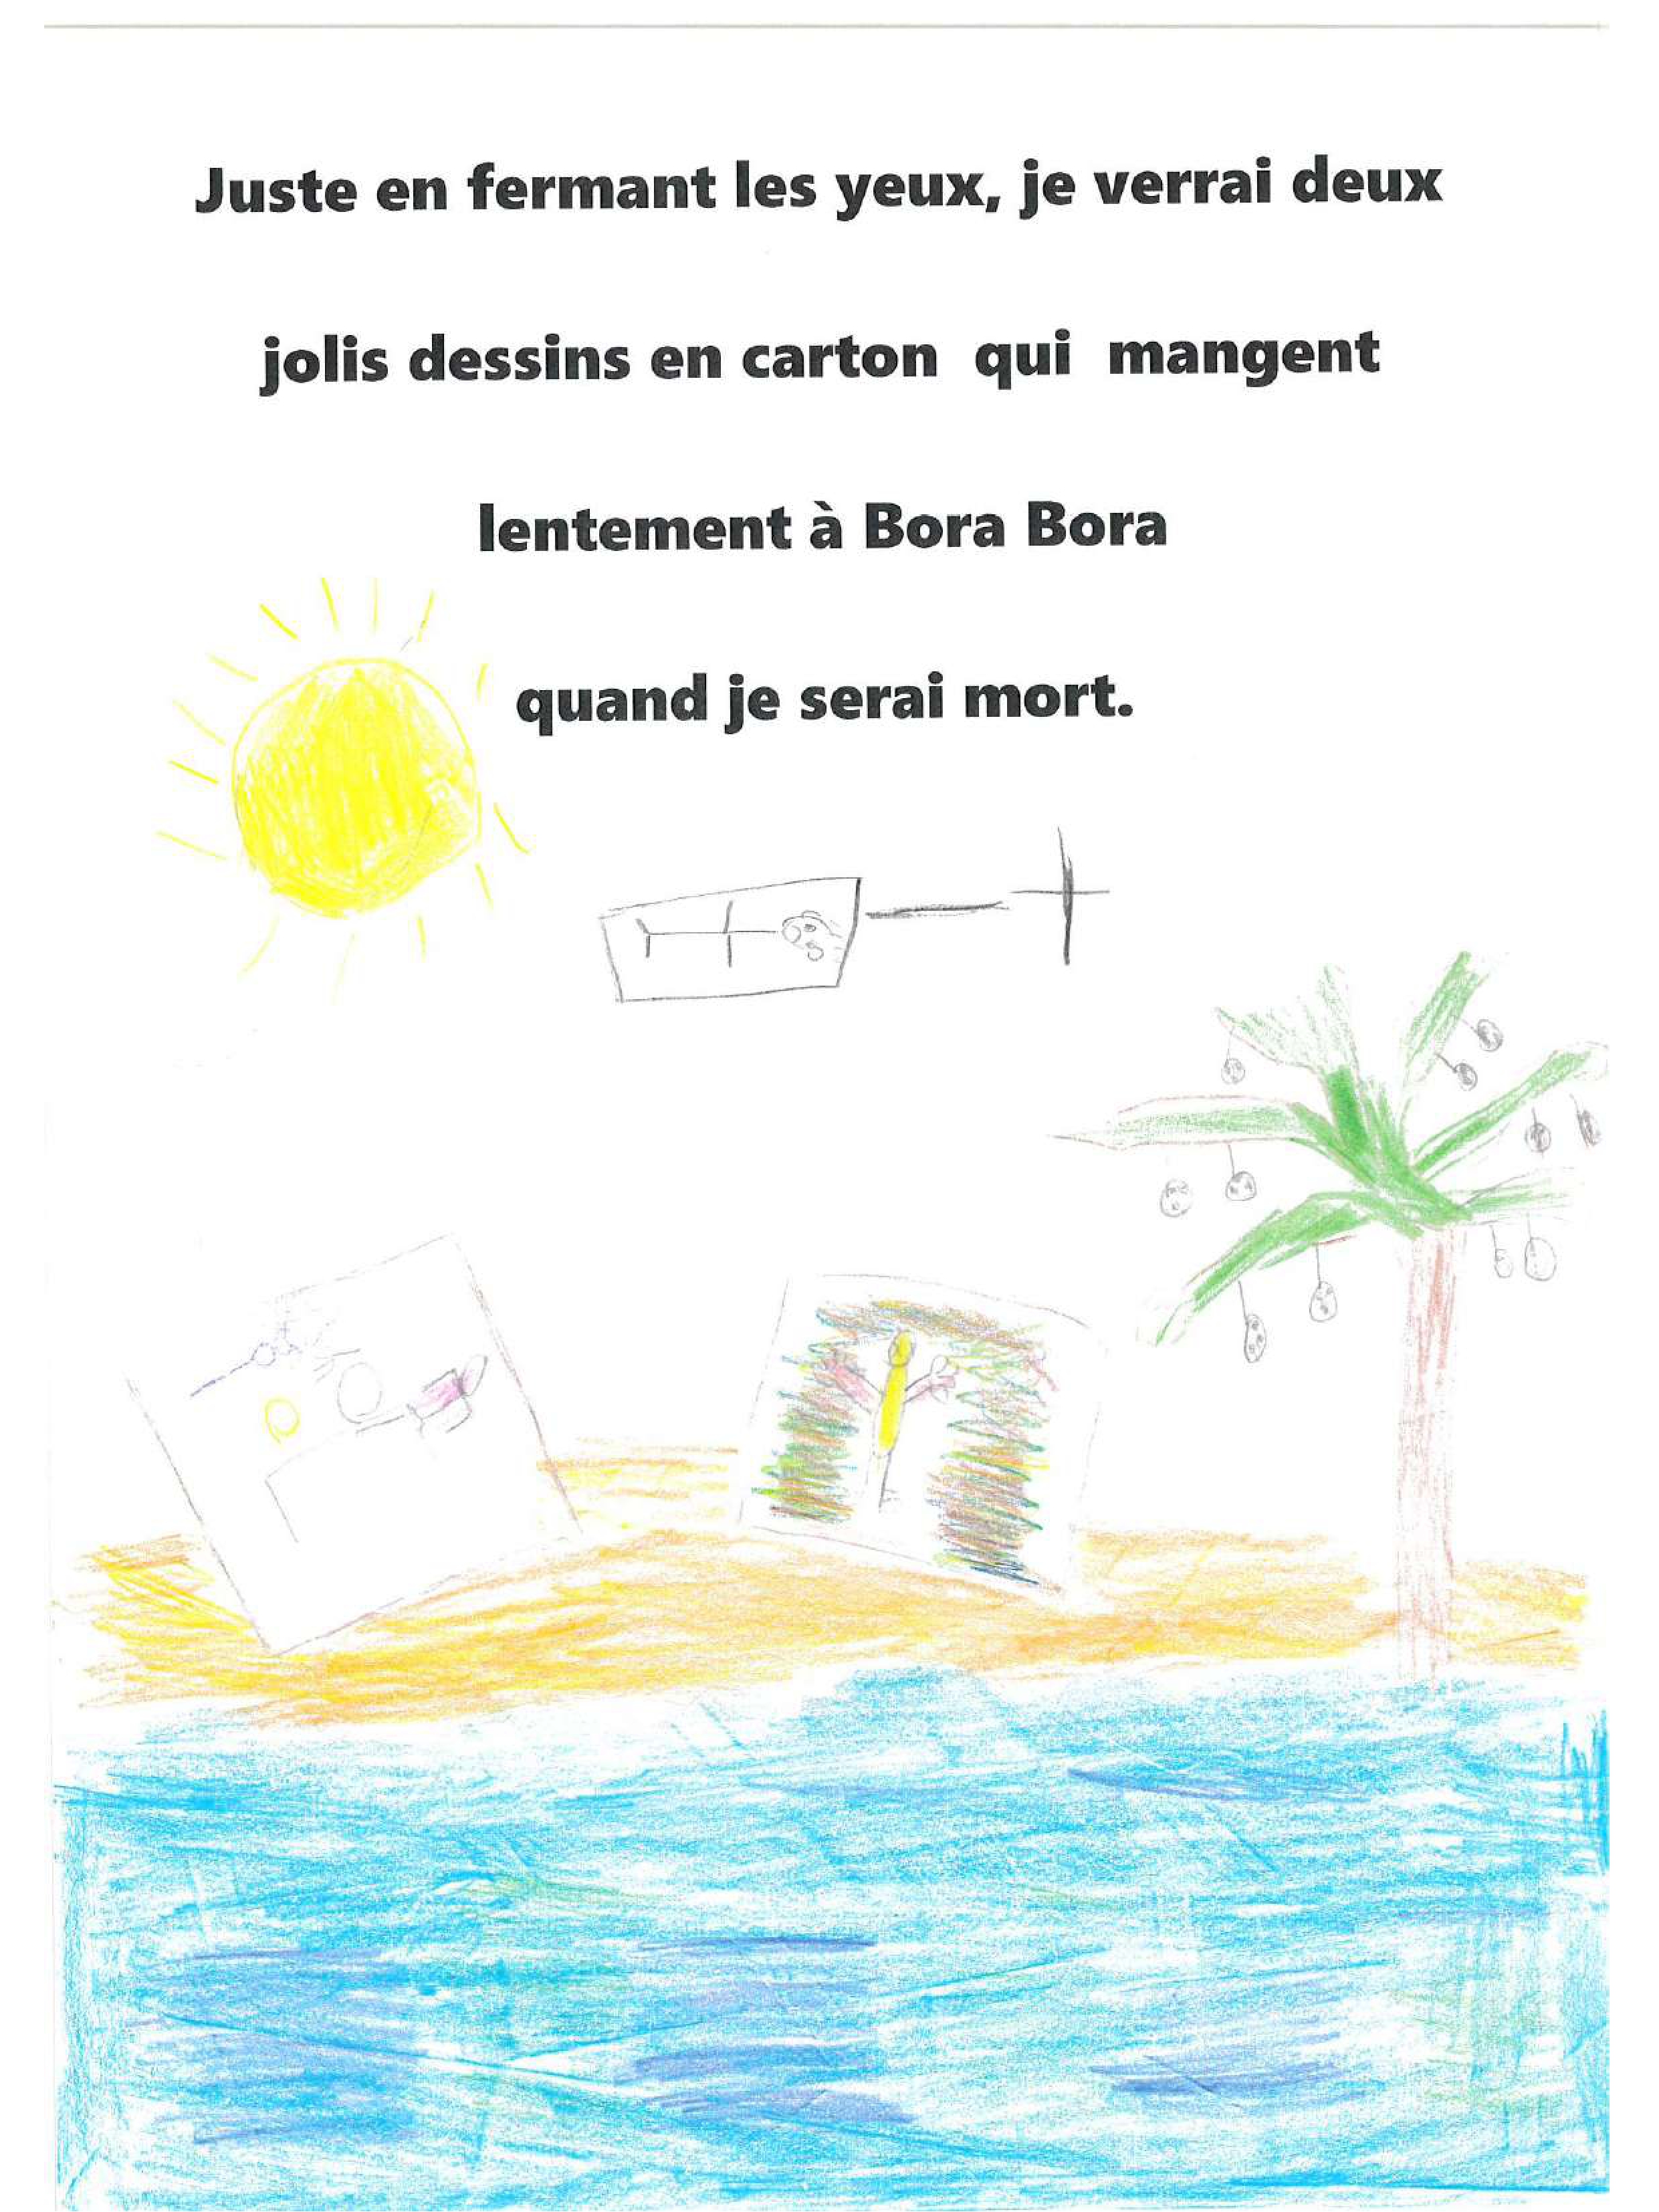 Juste en fermant les yeux, je verrai deux
jolis dessins en carton qui mangent
lentement à Bora Bora
quand je serai mort.